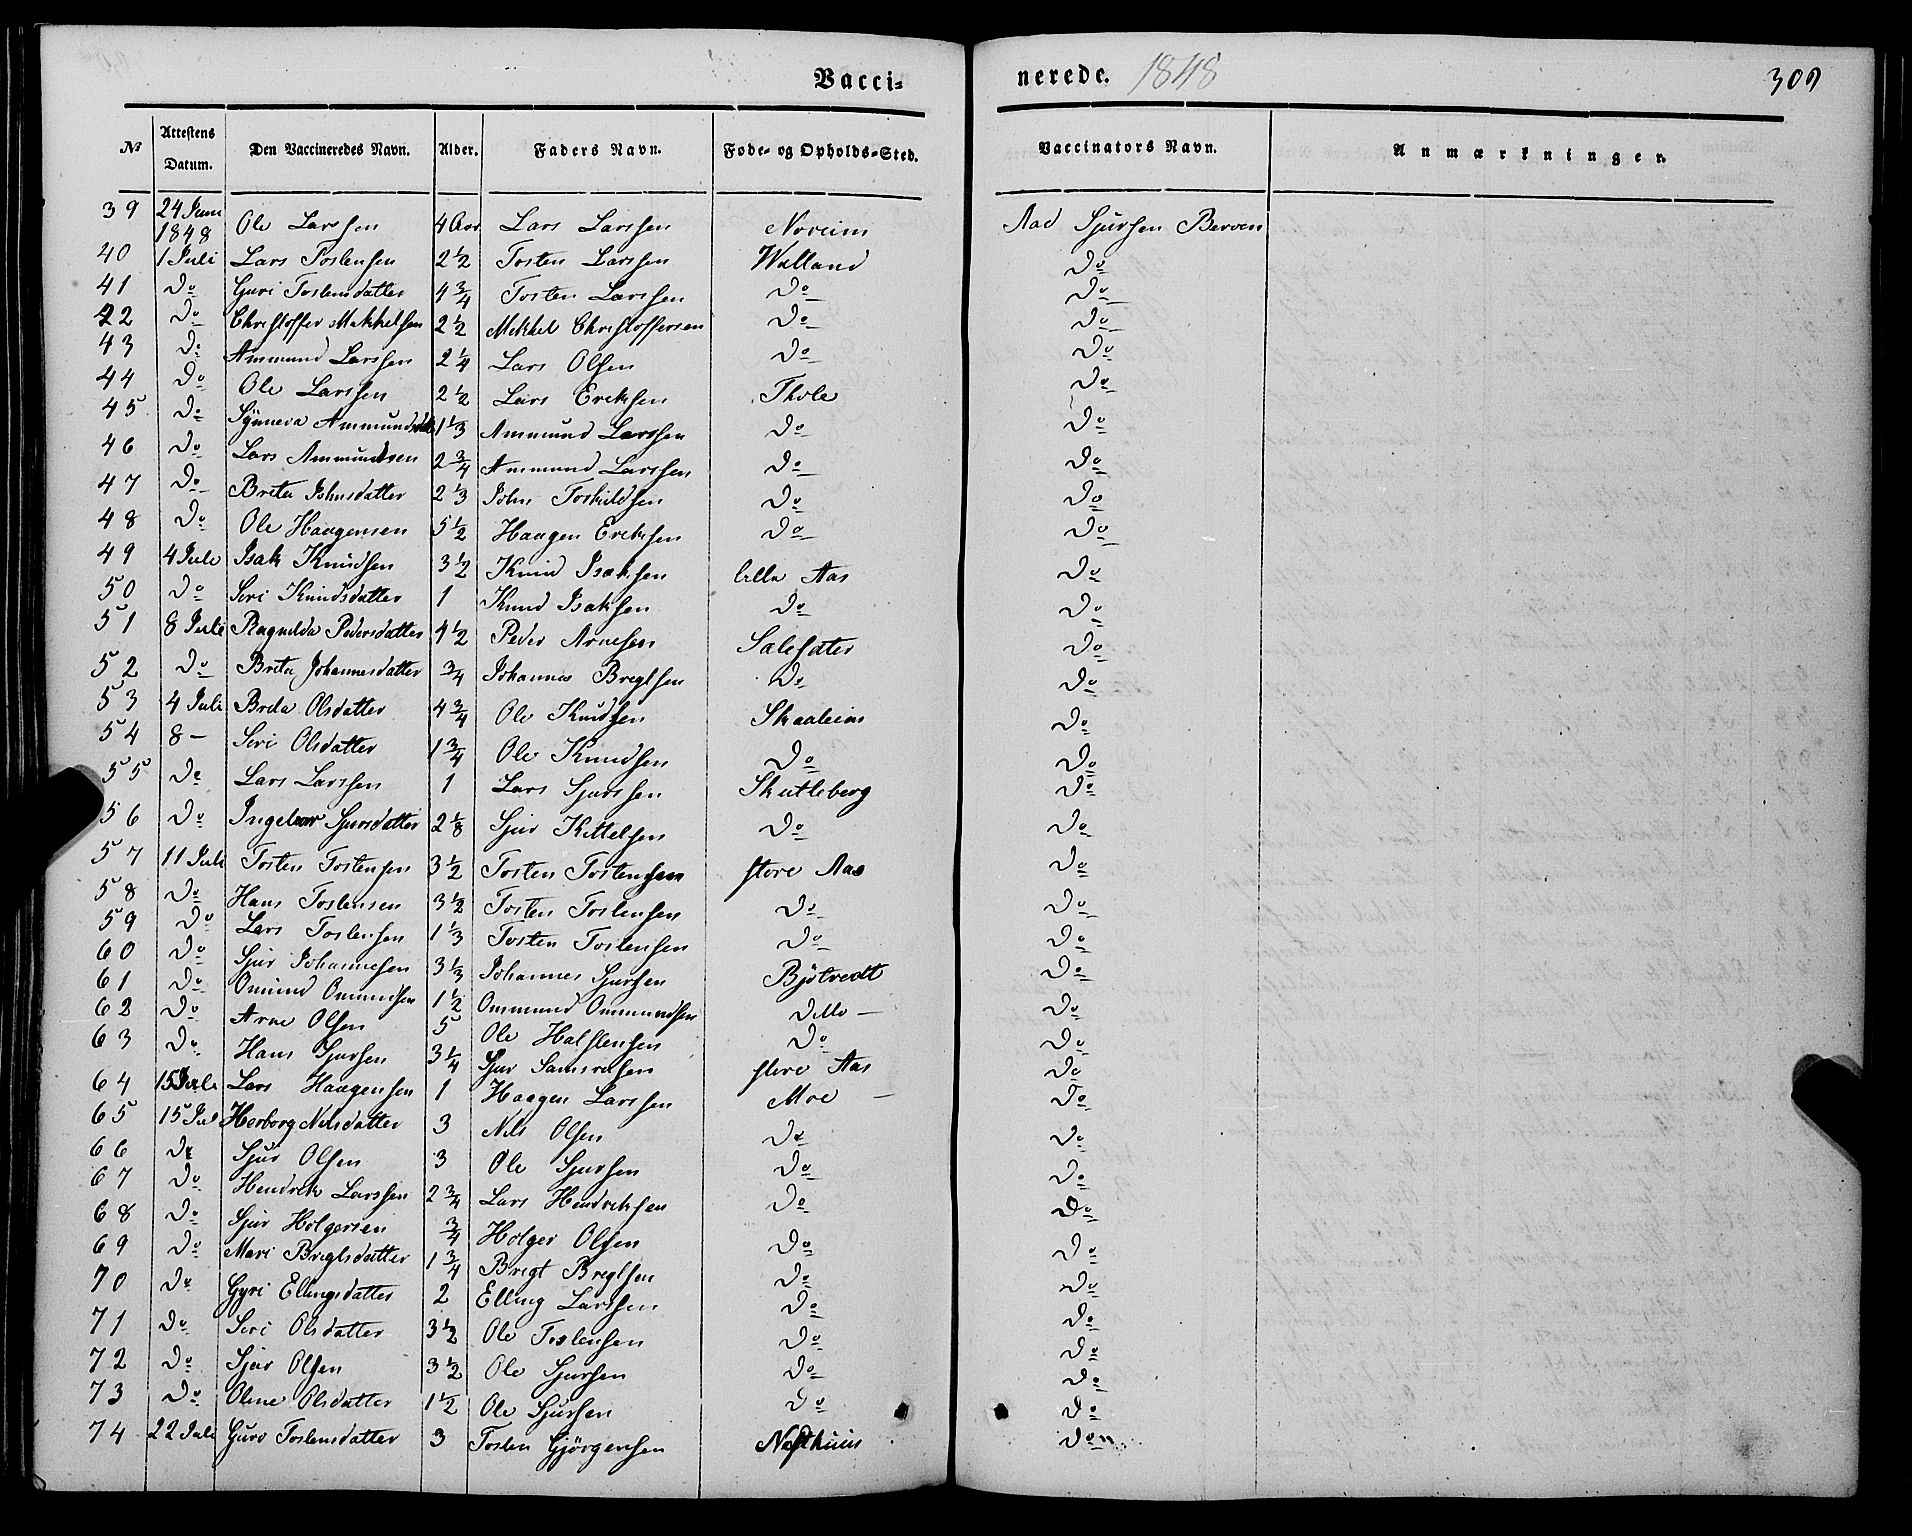 Vacci=
nerede. 1848
309
№ | Attestens Datum. | Den Vaccineredes Navn. | Alder. | Faders Navn. | Føde- og Opholds-Sted. | Vaccinators Navn. | Anmærkninger.
39 | 24 Juni 1848 | Ole Larssen | 4 Aar | Lars Larssen | Noreim | Aad Sjursen Berven
40 | 1 Juli | Lars Tostensen | 2 1/2 | Tosten Larssen | Walland | Do
41 | Do | Guri Tostensdatter | 4 3/4 | Tosten Larssen | Do | Do
42 | Do | Christoffer Mikkelsen | 2 1/2 | Mikkel Christoffersen | Do | Do
43 | Do | Ammund Larssen | 2 1/4 | Lars Olsen | Do | Do
44 | Do | Ole Larssen | 2 1/2 | Lars Eriksen | Thole | Do
45 | Do | Synneva Ammundsdtr | 1 1/3 | Ammund Larssen | Do | Do
46 | Do | Lars Ammundsen | 2 3/4 | Ammund Larssen | Do | Do
47 | Do | Brita Johnsdatter | 2 1/3 | John Torkildsen | Do | Do
48 | Do | Ole Haagensen | 5 1/2 | Haagen Eriksen | Do | Do
49 | 4 Juli | Isak Knudsen | 3 1/2 | Knud Isaksen | lille Aas | Do
50 | Do | Seri Knudsdatter | 1 | Knud Isaksen | Do | Do
51 | 8 Juli | Ragnilda Pedersdatter | 4 1/2 | Peder Arnesen | Salesæter | Do
52 | Do | Brita Johannesdatter | 3/4 | Johannes Bregtsen | Do | Do
53 | 4 Juli | Brita Olsdatter | 4 3/4 | Ole Knudsen | Skaaleim | Do
54 | 8 – | Seri Olsdatter | 1 3/4 | Ole Knudsen | Do | Do
55 | Do | Lars Larssen | 1 | Lars Sjursen | Skutleberg | Do
56 | Do | Ingebor Sjursdatter | 2 1/8 | Sjur Kittelsen | Do | Do
57 | 11 Juli | Tosten Tostensen | 3 1/2 | Tosten Tostensen | store Aas | Do
58 | Do | Hans Tostensen | 3 1/2 | Tosten Tostensen | Do | Do
59 | Do | Lars Tostensen | 1 1/3 | Tosten Tostensen | Do | Do
60 | Do | Sjur Johannesen | 3 1/3 | Johannes Sjursen | Bjotvedt | Do
61 | Do | Omund Omundsen | 1 1/2 | Ommund Ommundsen | Ditto – | Do
62 | Do | Arne Olsen | 5 | Ole Halstensen | Do | Do
63 | Do | Hans Sjursen | 3 1/4 | Sjur Samsonsen | store Aas | Do
64 | 15 Juli | Lars Haagensen | 1 | Haagen Larssen | Moe – | Do
65 | 15 Jul | Herborg Nilsdatter | 3 | Nils Olsen | Do | Do
66 | Do | Sjur Olsen | 3 | Ole Sjursen | Do | Do
67 | Do | Hendrik Larssen | 2 3/4 | Lars Hendriksen | Do | Do
68 | Do | Sjur Holgersen | 3/4 | Holger Olsen | Do | Do
69 | Do | Mari Bregtsdatter | 1 3/4 | Bregt Bregtsen | Do | Do
70 | Do | Gyri Ellingsdatter | 2 | Elling Larssen | Do | Do
71 | Do | Seri Olsdatter | 3 1/2 | Ole Tostensen | Do | Do
72 | Do | Sjur Olsen | 3 1/2 | Ole Sjursen | Do | Do
73 | Do | Oline Olsdatter | 1 1/2 | Ole Sjursen | Do | Do
74 | 22 Juli | Guro Tostensdatter | 3 | Tosten Gjørgensen | Nesthuus | Do